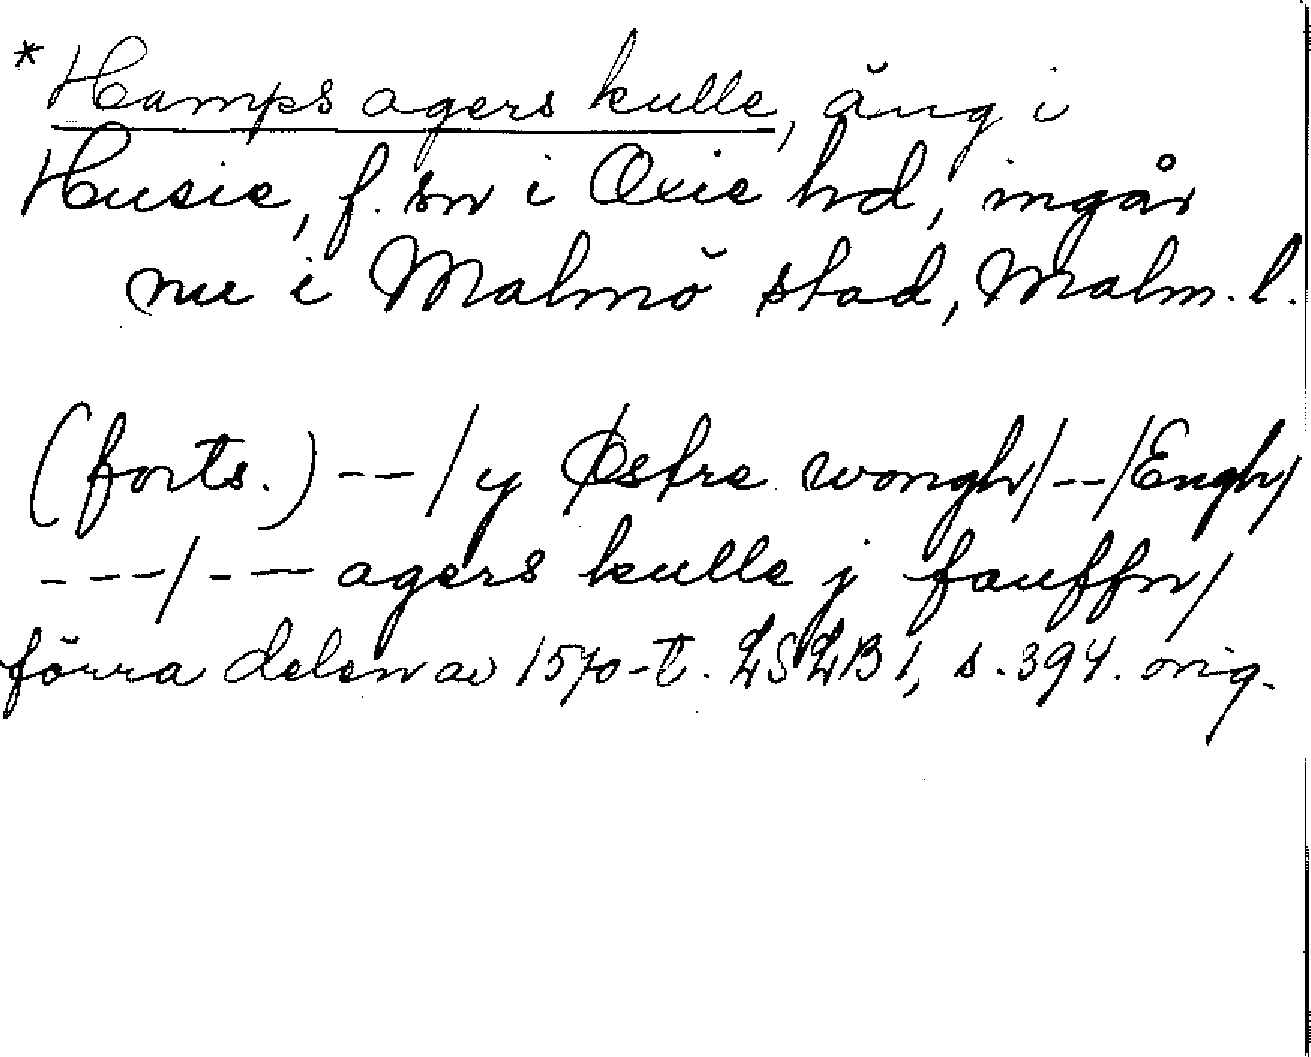 * Hamps agers kulle, äng i
Husie, f. sn i Oxie hd, ingår
nu i Malmö stad, Malm. l.
(forts.) -- / y Østre wongh/ -- /Engh/
--- / -- agers kulle j fauffn/
förra delen av 1570-t. LSLB 1, s. 394. orig.